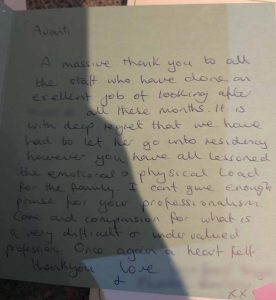 Avanti
A massive thank you to all
the staff who have done an
exellent job of looking after
all these months. It is
with deep regret that we have
had to let her go into residency
however you have all lessoned
the emotional & physical load
for the family. I cant give enough
praise for your professionalism.
Care and compassion for what is
a very difficult & under valued
profession. Once again a heart felt
thankyou Love
&
xx